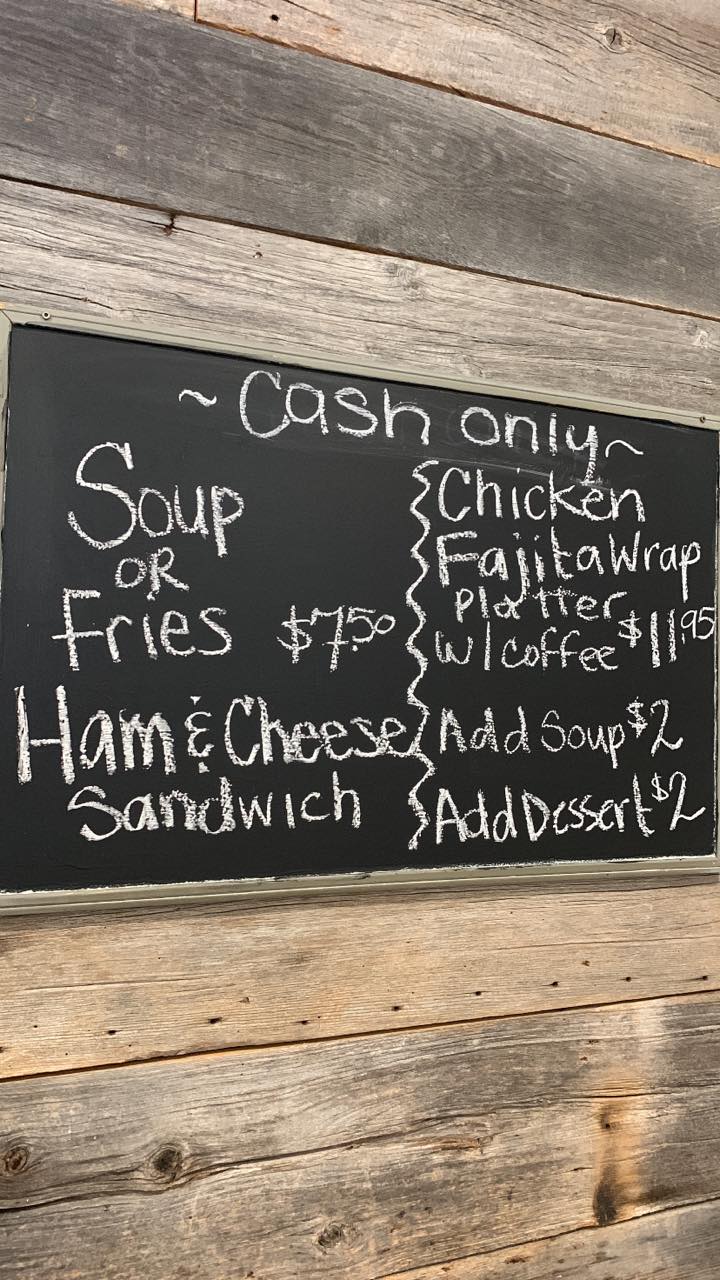 ~ Cash only ~
Soup
OR
Fries $7.50
Ham & Cheese
Sandwich
Chicken
Fajita Wrap
Platter
w/coffee $11.95
Add Soup $2
Add Dessert $2